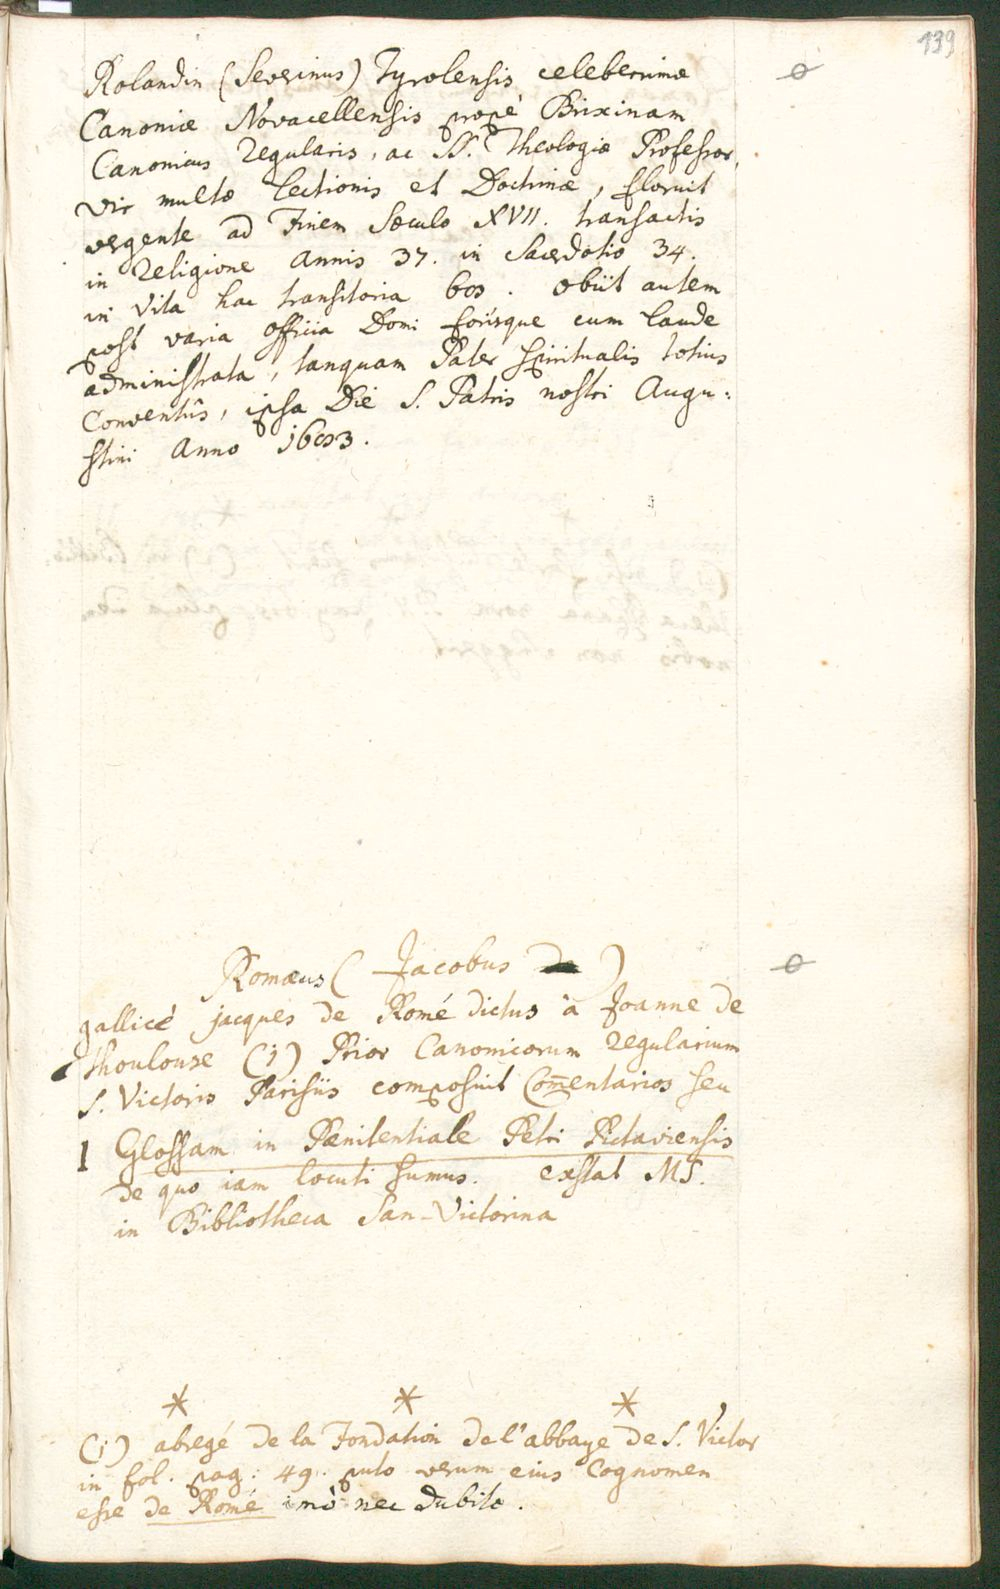 139
Rolandin (Severinus) Tyrolensis celeberrimæ
Canoniæ Novacellensis propè Brixinam
Canonicus Regularis, ac SS. Theologiæ Professor,
vir multæ Lectionis et Doctrinæ, floruit
vergente ad Finem Sæculo XVII. transactis
in Religione Annis 37. in Sacerdotio 34.
in vita hac transitoria 60s. obiit autem
post varia officia Domi forisque cum laude
administrata, tanquam Pater spiritualis totius
Conventûs, ipsa Die S. Patris nostri Augu=
stini Anno 1693.
Romæus (Jacobus de)
gallicè jacques de Romé dictus à Joanne de
Thoulouse (1) Prior Canonicorum Regularium
S. Victoris Parisiis composuit Com̄entarios seu
1 Glossam in Pænitentiale Petri Pictaviensis
de quo iam locuti sumus. exstat MS.
in Bibliotheca San-Victorina
* * *
(1) abregé de la Fondation de l'abbaye de S. Victor
in fol. pag: 49. puto verum eius Cognomen
esse de Romé imò nec dubito.